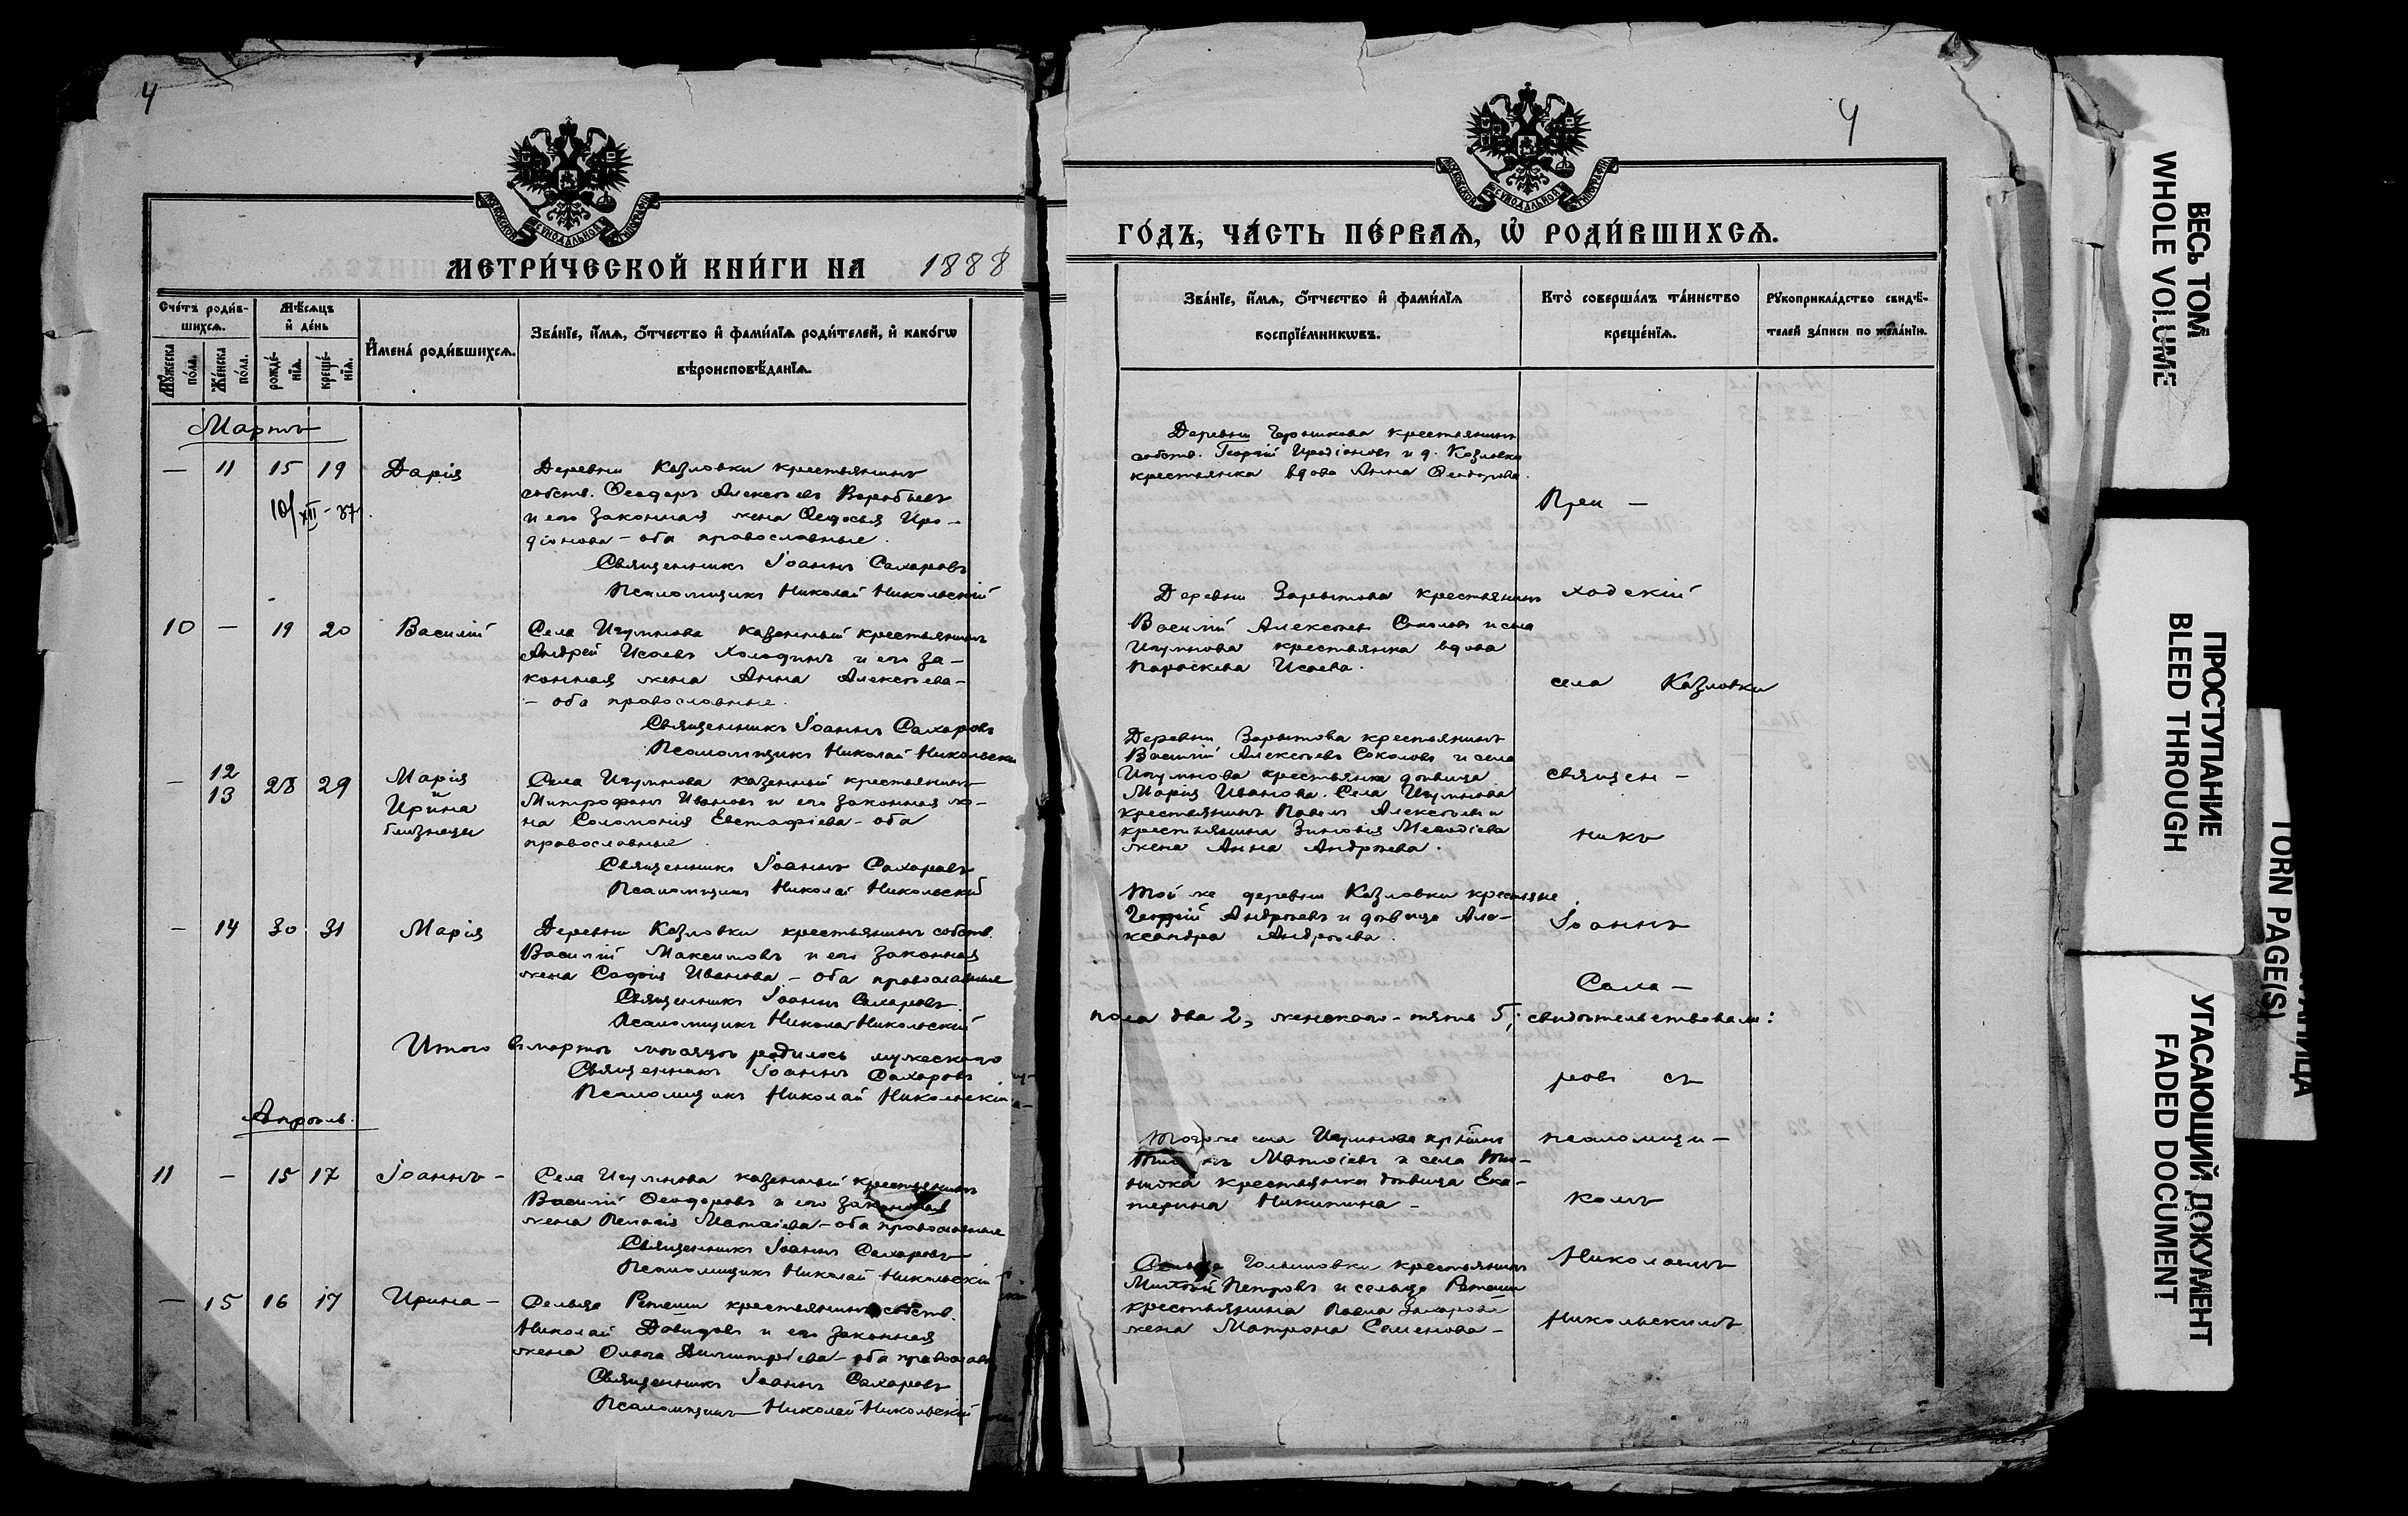 4
МЕТРИ́ЧЕСКОЙ КНИ́ГИ НА 1888
Сче́тъ роди́в-
шихсѧ.
Мѣ́сѧцъ
и҆ де́нь
Мꙋ́жеска
по́ла.
Же́нска
по́ла.
рожде́-
нїѧ.
креще́-
нїѧ.
И҆мена̀ роди́вшихсѧ.
Зва́нїе, и҆́мѧ, ѻ҆́тчество и҆ фами́лїѧ роди́телей, и҆ како́гѡ
вѣроисповѣ́данїѧ.
Мартъ
— 11 15 19 Дарія
10/XII - 87
Деревни Козловки крестьянинъ
собств. Ѳеодоръ Алексѣевъ Воробьевъ
и его законная жена Ѳедосья Иро-
діонова - оба православные.
Священникъ Іоаннъ Сахаровъ
Псаломщикъ Николай Никольскій
10 — 19 20 Василій
Села Игумнова казенный крестьянинъ
Андрей Исаевъ Холодинъ и его за-
конная жена Анна Алексѣева-
- оба православные.
Священникъ Іоаннъ Сахаровъ
Псаломщикъ Николай Никольскій
— 12 13 28 29 Марія
и
Ирина
близнецы
Села Игумнова казенный крестьянинъ
Митрофанъ Ивановъ и его законная же-
на Соломонія Евстафіева - оба
православные.
Священникъ Іоаннъ Сахаровъ
Псаломщикъ Николай Никольскій
— 14 30 31 Марія
Деревни Козловки крестьянинъ собств.
Василій Максимовъ и его законная
жена Софія Иванова - оба православные
Священникъ Іоаннъ Сахаровъ
Псаломщикъ Николай Никольскій
Итого въ мартѣ мѣсяцѣ родилось мужескаго
Священникъ Іоаннъ Сахаровъ
Псаломщикъ Николай Никольскій
Апрѣль.
11 — 15 17 Іоаннъ -
Села Игумнова казенный крестьянинъ
Василій Ѳеодоровъ и его законная
жена Матѳіева - оба православные
Священникъ Іоаннъ Сахаровъ
Псаломщикъ Николай Никольскій
— 15 16 17 Ирина -
Сельца Ретеши крестьянинъ собств.
Николай Давидовъ и его законная
жена Ольга Димитріева - оба православ
Священникъ Іоаннъ Сахаровъ
Псаломщикъ Николай Никольскій
4
ГО́ДЪ, ЧА́СТЬ ПЕ́РВАѦ, Ѽ РОДИ́ВШИХСѦ.
Зва́нїе, и҆́мѧ, ѻ҆́тчество и҆ фами́лїѧ
воспрїе́мникѡвъ.
Кто̀ соверша́лъ та́инство
креще́нїѧ.
Рꙋкоприкла́дство свидѣ́-
телей за́писи по жела́нїю.
Деревни крестьянинъ
собств. Георгій Иродіоновъ и д. Козловки
крестьянка вдова Анна Ѳеодорова.
Деревни Зарытова крестьянинъ
Василій Алексѣевъ Соколовъ и села
Игумнова крестьянка вдова
Параскева Исаева.
Деревни Зарытова крестьянинъ
Василій Алексѣевъ Соколовъ и села
Игумнова крестьянка дѣвица
Марія Иванова. Села Игумнова
крестьянинъ Павелъ Алексѣевъ и
крестьянина Зиновія Меѳодіева
жена Анна Андреева.
Той же деревни Козловки крестьяне
Георгій Андреевъ и дѣвица Але-
ксандра Андреева.
пола два 2, женскаго - пять 5; свидѣтельствовали:
Тогоже села Игумнова
Матѳіевъ и села
крестьянка дѣвица Ека-
терина Никитина -
Сельца Голышовки крестьянинъ
Петровъ и сельца Ретеши
крестьянина Павла Захарова
жена Матрона Семенова -
При -
ходскій
села Козловки
священ -
никъ
Іоаннъ
Саха -
ровъ съ
псаломщи -
комъ
Николаемъ
Никольскимъ
ВЕСЬ ТОМ
WHOLE VOLUME
ПРОСТУПАНИЕ
BLEED THROUGH
TORN PAGE(S)
УГАСАЮЩИЙ ДОКУМЕНТ
FADED DOCUMENT